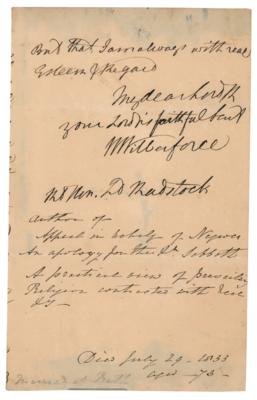 But that I am always with real
Esteem & Regard
My dear Lord
your Lordps faithful Servt
W Wilberforce
Rt Hon. Ld Radstock
Author of
Appeal in behalf of Negroes
An apology for the Sabbath
A practical view of prevailing
Religion contrasted with real
&c
Died July 29 - 1833
aged 73 -